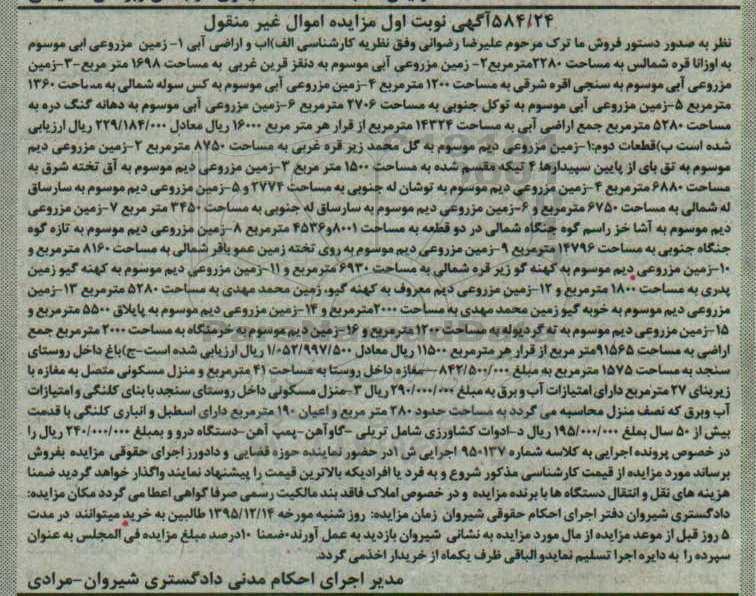 ۵۸۴/۲۴آگهی نوبت اول مزایده اموال غیر منقول
نظر به صدور دستور فروش ما ترک مرحوم علیرضا رضوانی وفق نظریه کارشناسی الف)اب و اراضی آبی ۱- زمین مزروعی ابی موسوم
به اوزانا قره شمالس به مساحت ۲۲۸۰مترمربع۲- زمین مزروعی آبی موسوم به دنقز قرین غربی به مساحت ۱۶۹۸ متر مربع-۳-زمین
مزروعی آبی موسوم به سنجی اقره شرقی به مساحت ۱۲۰۰ مترمربع ۴-زمین مزروعی آبی موسوم به کس سوله شمالی به مساحت ۱۳۶۰
مترمربع ۵-زمین مزروعی آبی موسوم به توکل جنوبی به مساحت ۲۷۰۶ مترمربع ۶-زمین مزروعی آبی موسوم به دهانه گنگ دره به
مساحت ۵۲۸۰ مترمربع جمع اراضی آبی به مساحت ۱۴۳۲۴ مترمربع از قرار هر متر مربع ۱۶۰۰۰ ریال معادل ۲۲۹/۱۸۴/۰۰۰ ریال ارزیابی
شده است ب)قطعات دوم:۱-زمین مزروعی دیم موسوم به گل محمد زیر قره غربی به مساحت ۸۷۵۰ مترمربع ۲-زمین مزروعی دیم
موسوم به تق بای از پایین سپیدارها ۴ تیکه مقسم شده به مساحت ۱۵۰۰ متر مربع ۳-زمین مزروعی دیم موسوم به آق تخته شرق به
مساحت ۶۸۸۰ مترمربع ۴-زمین مزروعی دیم موسوم به توشان له جنوبی به مساحت ۲۷۷۴ و ۵-زمین مزروعی دیم موسوم به سارساق
له شمالی به مساحت ۶۷۵۰ مترمربع و ۶-زمین مزروعی دیم موسوم به سارساق له جنوبی به مساحت ۳۴۵۰ متر مربع ۷-زمین مزروعی
دیم موسوم به آشا خز راسم گوه جنگاه شمالی در دو قطعه به مساحت ۸۰۰۱و۴۵۳۶ مترمربع ۸-زمین مزروعی دیم موسوم به تازه گوه
جنگاه جنوبی به مساحت ۱۴۷۹۶ مترمربع ۹-زمین مزروعی دیم موسوم به روی تخته زمین عمو باقر شمالی به مساحت ۸۱۶۰ مترمربع و
۱۰-زمین مزروعی دیم موسوم به کهنه گو زیر قره شمالی به مساحت ۶۹۳۰ مترمربع و ۱۱-زمین مزروعی دیم موسوم به کهنه گیو زمین
پدری به مساحت ۱۸۰۰ مترمربع و ۱۲-زمین مزروعی دیم معروف به کهنه گیو، زمین محمد مهدی به مساحت ۵۲۸۰ مترمربع ۱۳-زمین
مزروعی دیم موسوم به خوبه گیو زمین محمد مهدی به مساحت ۲۰۰۰مترمربع و ۱۴-زمین مزروعی دیم موسوم به پایلاق ۵۵۰۰ مترمربع و
۱۵-زمین مزروعی دیم موسوم به ته گردیوله به مساحت ۱۲۰۰ مترمربع و ۱۶-زمین دیم موسوم به خرمنگاه به مساحت ۲۰۰۰ مترمربع جمع
اراضی به مساحت ۹۱۵۶۵متر مربع از قرار هر مترمربع ۱۱۵۰۰ ریال معادل ۱/۰۵۲/۹۹۷/۵۰۰ ریال ارزیابی شده است-ج)باغ داخل روستای
سنجد به مساحت ۱۵۷۵ مترمربع به مبلغ ۸۴۲/۵۰۰/۰۰۰-مغازه داخل روستا به مساحت ۴۱ مترمربع و منزل مسکونی متصل به مغازه با
زیربنای ۲۷ مترمربع دارای امتیازات آب و برق به مبلغ ۲۹۰/۰۰۰/۰۰۰ ریال ۳-منزل مسکونی داخل روستای سنجد با بنای کلنگی و امتیازات
آب وبرق که نصف منزل محاسبه می گردد به مساحت حدود ۲۸۰ متر مربع و اعیان ۱۹۰ مترمربع دارای اسطبل و انباری کلنگی با قدمت
بیش از ۵۰ سال بملغ ۱۹۵/۰۰۰/۰۰۰ ریال د-ادوات کشاورزی شامل تریلی -گاوآهن-پمپ آهن-دستگاه درو و بمبلغ ۲۴۰/۰۰۰/۰۰۰ ریال را
در خصوص پرونده اجرایی به کلاسه شماره ۹۵۰۱۳۷ اجرایی ش ۱در حضور نماینده حوزه قضایی و دادورز اجرای حقوقی مزایده بفروش
برساند مورد مزایده از قیمت کارشناسی مذکور شروع و به فرد یا افرادیکه بالاترین قیمت را پیشنهاد نمایند واگذار خواهد گردید ضمنا
هزینه های نقل و انتقال دستگاه ها با برنده مزایده و در خصوص املاک فاقد بند مالکیت رسمی صرفا گواهی اعطا می گردد مکان مزایده:
دادگستری شیروان دفتر اجرای احکام حقوقی شیروان زمان مزایده: روز شنبه مورخه ۱۳۹۵/۱۲/۱۴ طالبین به خرید میتوانند در مدت
۵ روز قبل از موعد مزایده از مال مورد مزایده به نشانی شیروان بازدید به عمل آورند،ضمنا ۱۰درصد مبلغ مزایده فی المجلس به عنوان
سپرده را به دایره اجرا تسلیم نمایدو الباقی ظرف یکماه از خریدار اخذمی گردد.
مدیر اجرای احکام مدنی دادگستری شیروان-مرادی